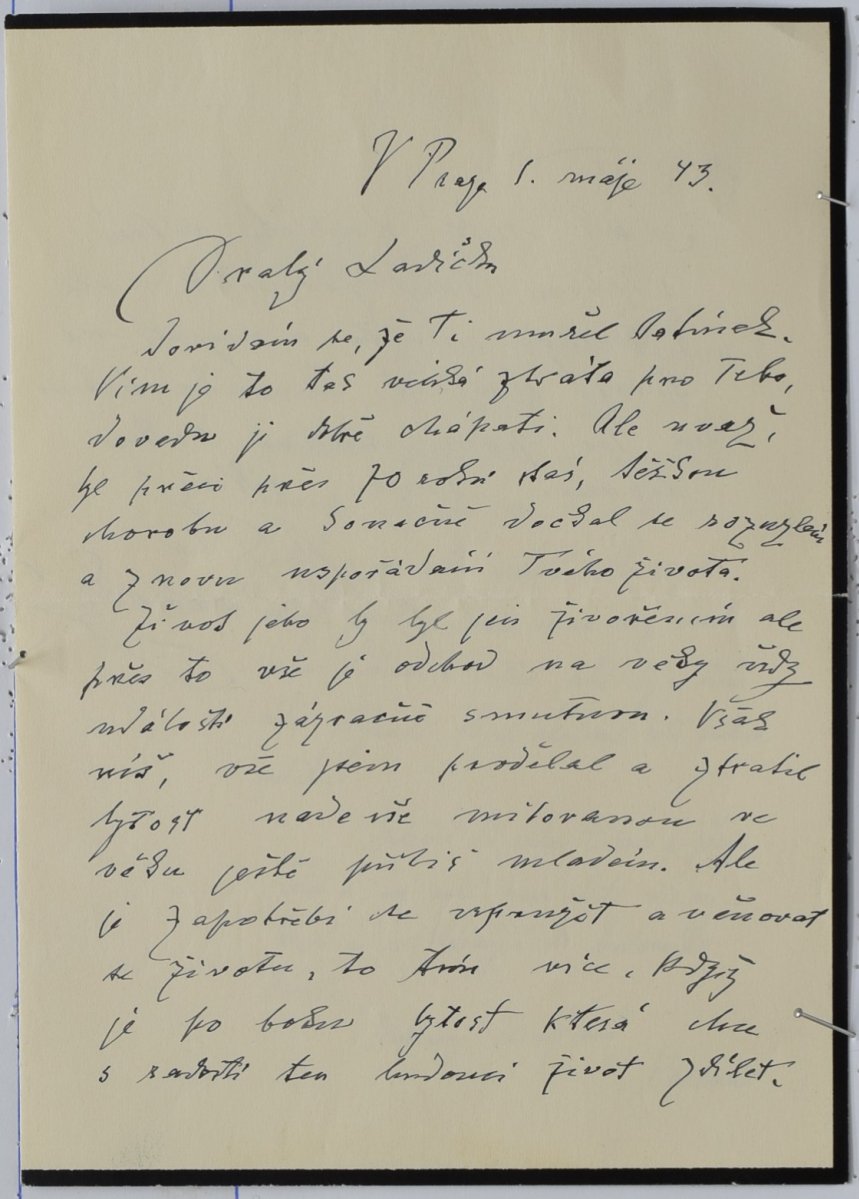 V Praze 1. máje 43.
Drahý Ladíčku
dovídám se, že Ti umřel Tatínek.
Vím je to tak veliká ztráta pro Tebe,
dovedu ji dobře chápati. Ale uvaž,
byl přeci přes 70 roků stár, těžkou
chorobu a konečně dočkal se rozuzlení
a znovu uspořádání Tvého života.
Život jeho by byl jen živořením ale
přes to vše je odchod na věky vždy
událostí smutnou. Však
víš, vše jsem prodělal a ztratil
bytost nade vše milovanou ve
věku ještě příliš mladém. Ale
je zapotřebí se vzpružit a věnovat
se životu, to tím více, když
je po boku bytost která chce
s radostí ten budoucí život sdílet.